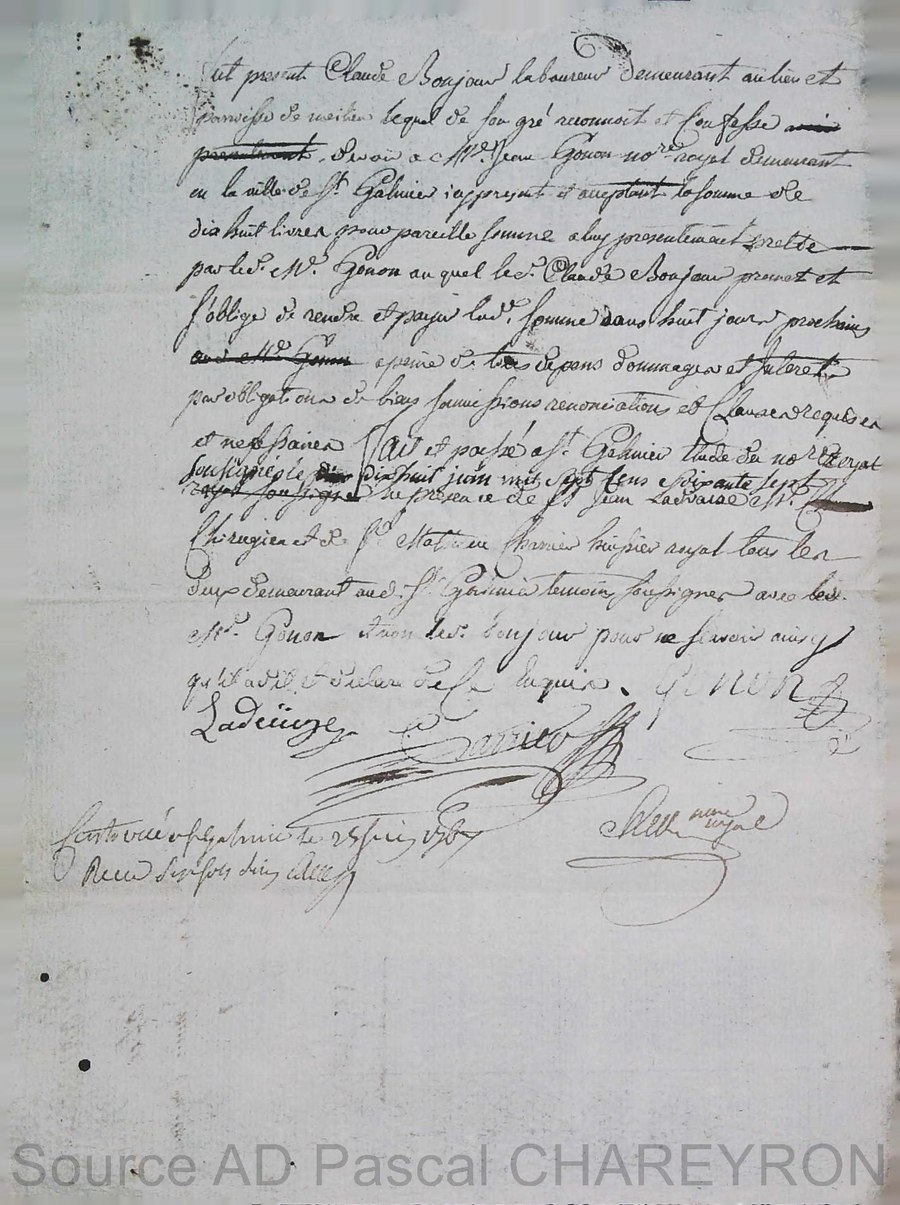 fut present Claude Bonjour laboureur demeurant au lieu et
parroisse de meilieu lequel de son gré reconnoit et Confesse
presentement devoir a Me. Jean Gonon nore. royal demeurant
en la ville de St. Galmier icy present et acceptant la somme de
dix huit livres pour pareille somme a luy presentement pretée
par led. Me. Gonon auquel led. Claude Bonjour promet et
s'oblige de rendre et payer lad. somme dans huit jours prochains
aud. Me. Gonon a peine de tous depens dommages et Interets
par obligation de biens soumissions renonciations et Clauses requises
et necessaires fait et passé a St. Galmier Etude du nore. royal
soussigné le dix huit juin mil sept Cens soixante sept
royal soussigné en presence de Sr Jean
Chirugien et de Sr. Mathieu Charrier huissier royal tous les
deux demeurant aud. St. Galmier temoins soussignes avec led.
Me. Gonon et non led. bonjour pour ne scavoir ainsy
qu'il a dit et declaré de ce Enquis. GONON
Ladeüuze
nore royal
Controllé a St Galmier le juin 1767
Recu six sols
Source AD Pascal CHAREYRON